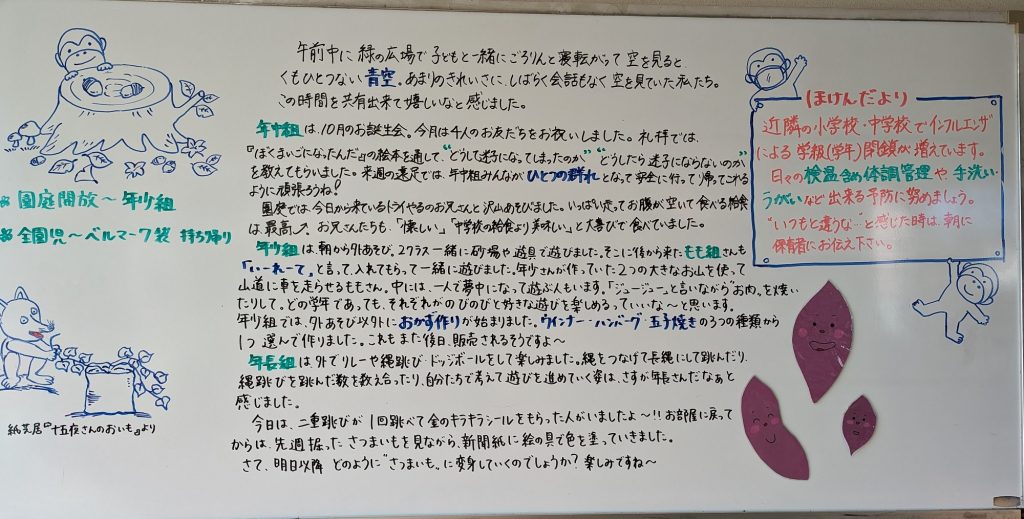 午前中に緑の広場で子どもと一緒にごろりんと寝転がって空を見ると
くもひとつない青空。あまりのきれいさに、しばらく会話もなく空を見ていた私たち。
この時間を共有出来て嬉しいなと感じました。
年中組は、10月のお誕生会。今月は4人のお友だちをお祝いしました。お礼拝では、
『ぼくまいごになったんだ』の絵本を通して、"どうして迷子になってしまったのか" "どうしたら迷子にならないのか"
を教えてもらいました。来週の遠足では、年中組みんながひとつの群れとなって安全に行って帰ってこれる
ように頑張ろうね!
園庭では、今日から来ているトライやるのお兄さんと沢山あそびました。いっぱい走ってお腹が空いて食べる給食
は最高♪。お兄さんたちも、「懐しい」「中学校の給食より美味しい」と大喜びで食べていました。
年少組は、朝から外あそび。2クラス一緒に砂場や遊具で遊びました。そこに後から来たもも組さんも
「いーれーて」と言って、入れてもらって一緒に遊びました。年少さんが作っていた2つの大きなお山を使って
山道に車を走らせるももさん。中には、一人で夢中になって遊ぶ人もいます。「ジュージュー」と言いながら"お肉"を焼い
たりして。どの学年であっても、それぞれがのびのびと好きな遊びを楽しめるっていいな〜と思います。
年少組では、外あそび以外におかず作りが始まりました。ウインナー・ハンバーグ・玉子焼きの3つの種類から
1つ選んで作りました。これもまた後日、販売されるそうですよ〜
年長組は外でリレーや縄跳び・ドッジボールをして楽しみました。縄をつなげて長縄にして跳んだり、
縄跳びを跳んだ数を数え合ったり、自分たちで考えて遊びを進めていく姿は、さすが年長さんだなぁと
感じました。
今日は、二重跳びが1回跳べて金のキラキラシールをもらった人がいましたよ〜!!お部屋に戻って
からは、先週掘ったさつまいもを見ながら、新聞紙に絵の具で色を塗っていきました。
さて、明日以降どのように"さつまいも"に変身していくのでしょうか?楽しみですね〜
園庭開放〜年少組
全園児〜ベルマーク袋 持ち帰り
紙芝居『十五夜さんのおいも』より
ほけんだより
近隣の小学校・中学校でインフルエンザ
による学級(学年)閉鎖が増えています。
日々の検温含め体調管理や手洗い・
うがいなど出来る予防に努めましょう。
"いつもと違うな…"と感じた時は、朝に
保育者にお伝え下さい。